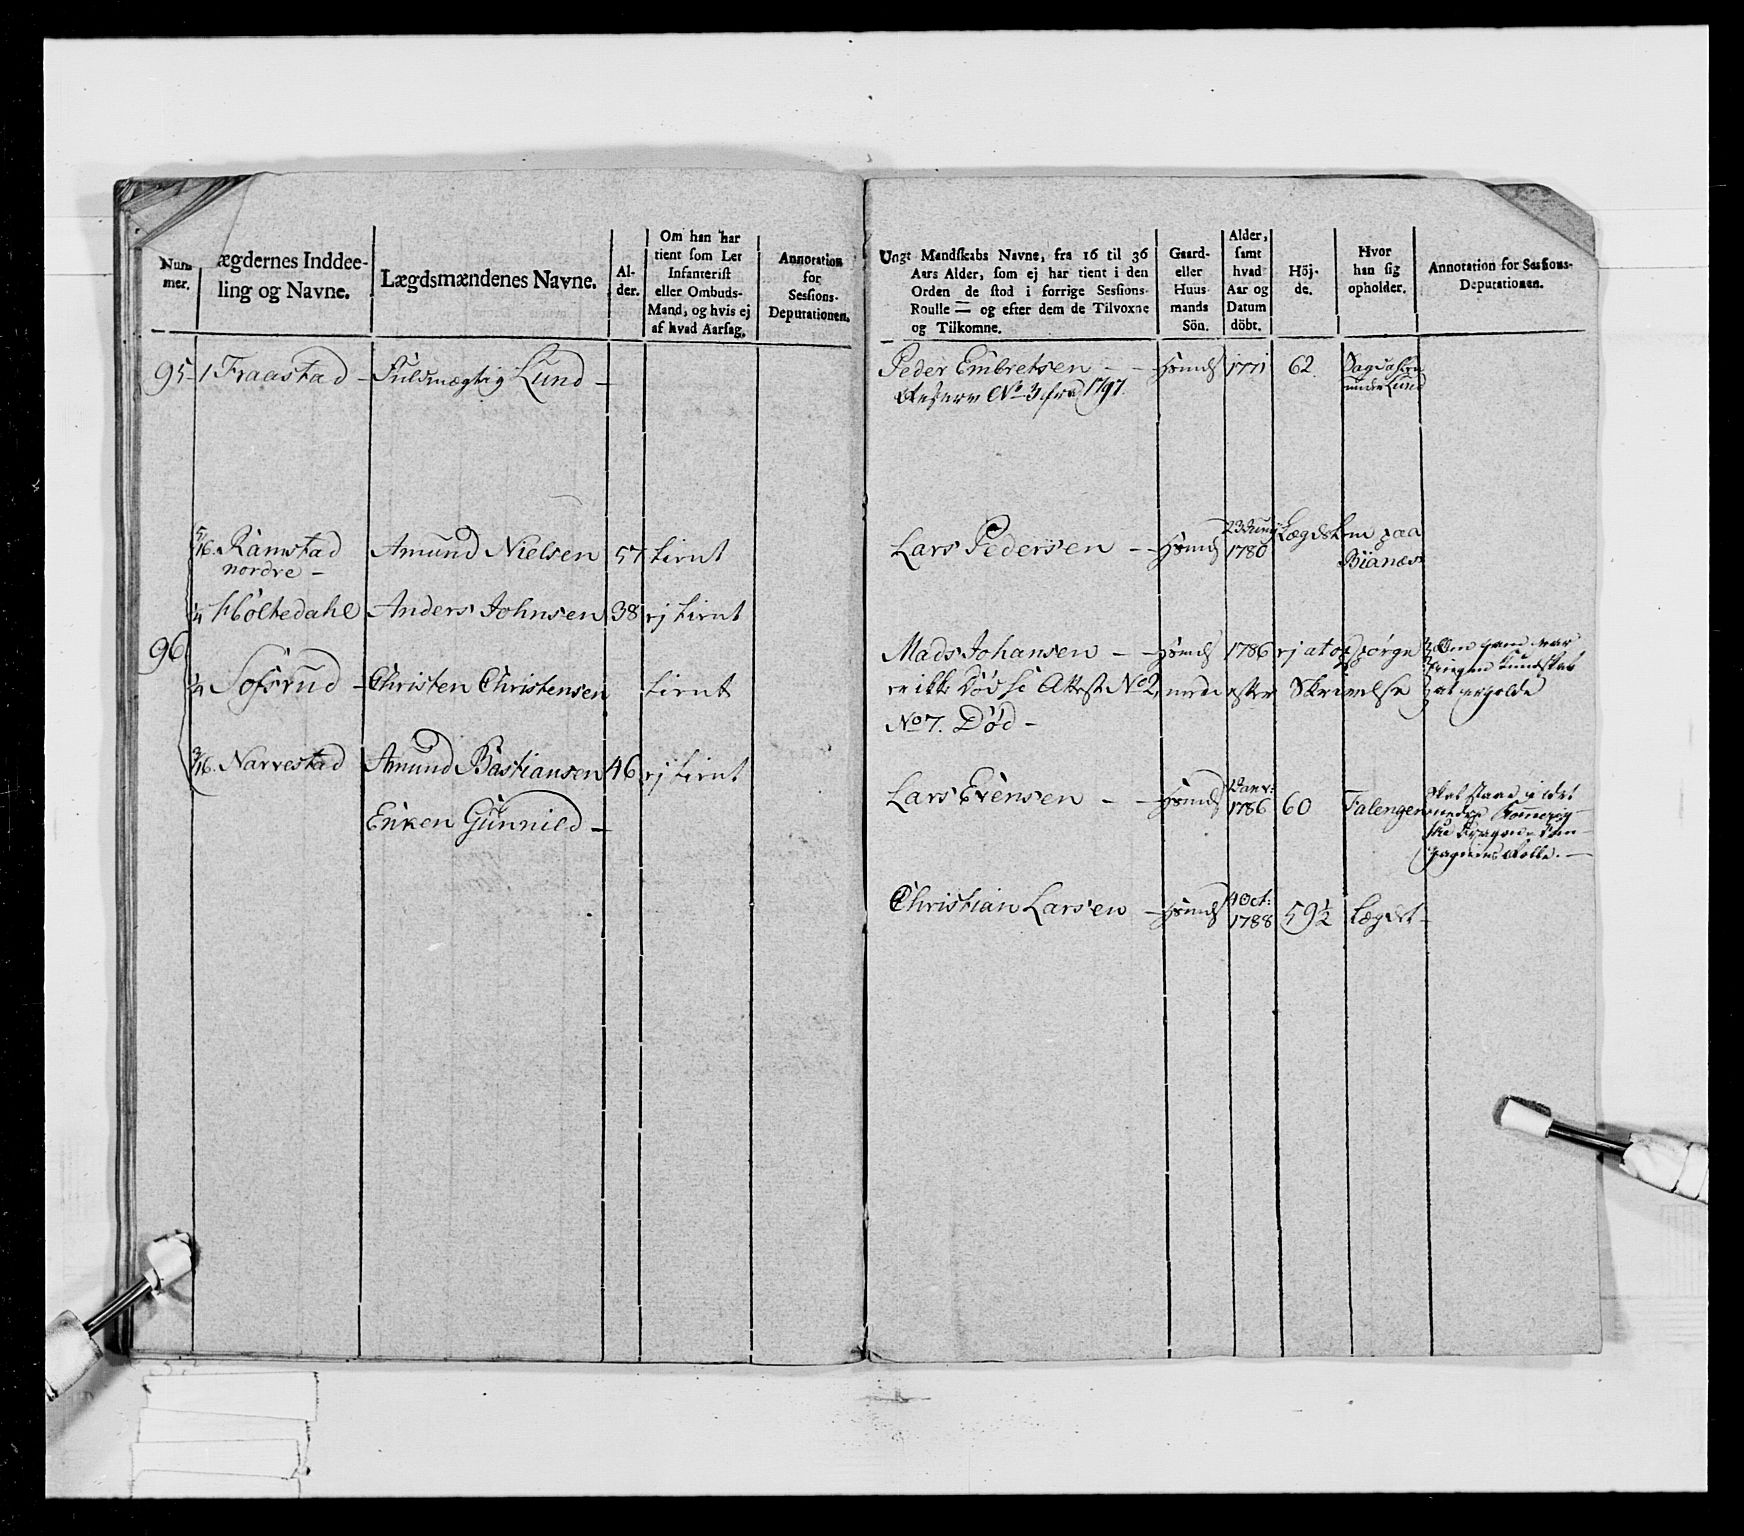 Num
mer.
ægdernes Inddee-
ling og Navne.
Lægdsmændenes Navne.
Al-
der.
Om han har
tient som Let
Infanterist
eller Ombuds-
Mand, og hvis ej
af hvad Aarsag.
Annotation
for
Sessions-
Deputationen.
95 1 Fraastad - Fuldmægtig Lund -
5/16 Ramstad Amund Nielsen 57 tient
nordre -
1/4 Holtedahl Anders Johnsen 38 ej tient
96
1/4 Sofsrud - Christen Christensen tient
3/16 Narvestad Amund Bastiansen 46 ej tient
Enken Gunnild -
Ungt Mandskabs Navne, fra 16 til 36
Aars Alder, som ej har tient i den
Orden de stod i forrige Sessions-
Roulle — og efter dem de Tilvoxne
og Tilkomne.
Gaard-
eller
Huus
mands
Sön.
Alder,
samt
hvad
Aar og
Datum
döbt.
Höj-
de.
Hvor
han sig
opholder.
Annotation for Sessions-
Deputationen.
Peder Embretsen - - Hsmds 1771 62.
under Lund
Reserve No 3 fra 1797.
Lars Pedersen - Hsmds 23 Juny 1780 Lægdet paa
Bianæs
Mads Johansen - - Hsmds 1786 ej at
er ikke Död se Attest No 2, Skrivelse
No 7. Död -
Lars Evensen - - Hsmds 1786 60 Falengen
Christian Larsen - Hsmds 4 Oct: 1788 59 1/2 Lægdet -